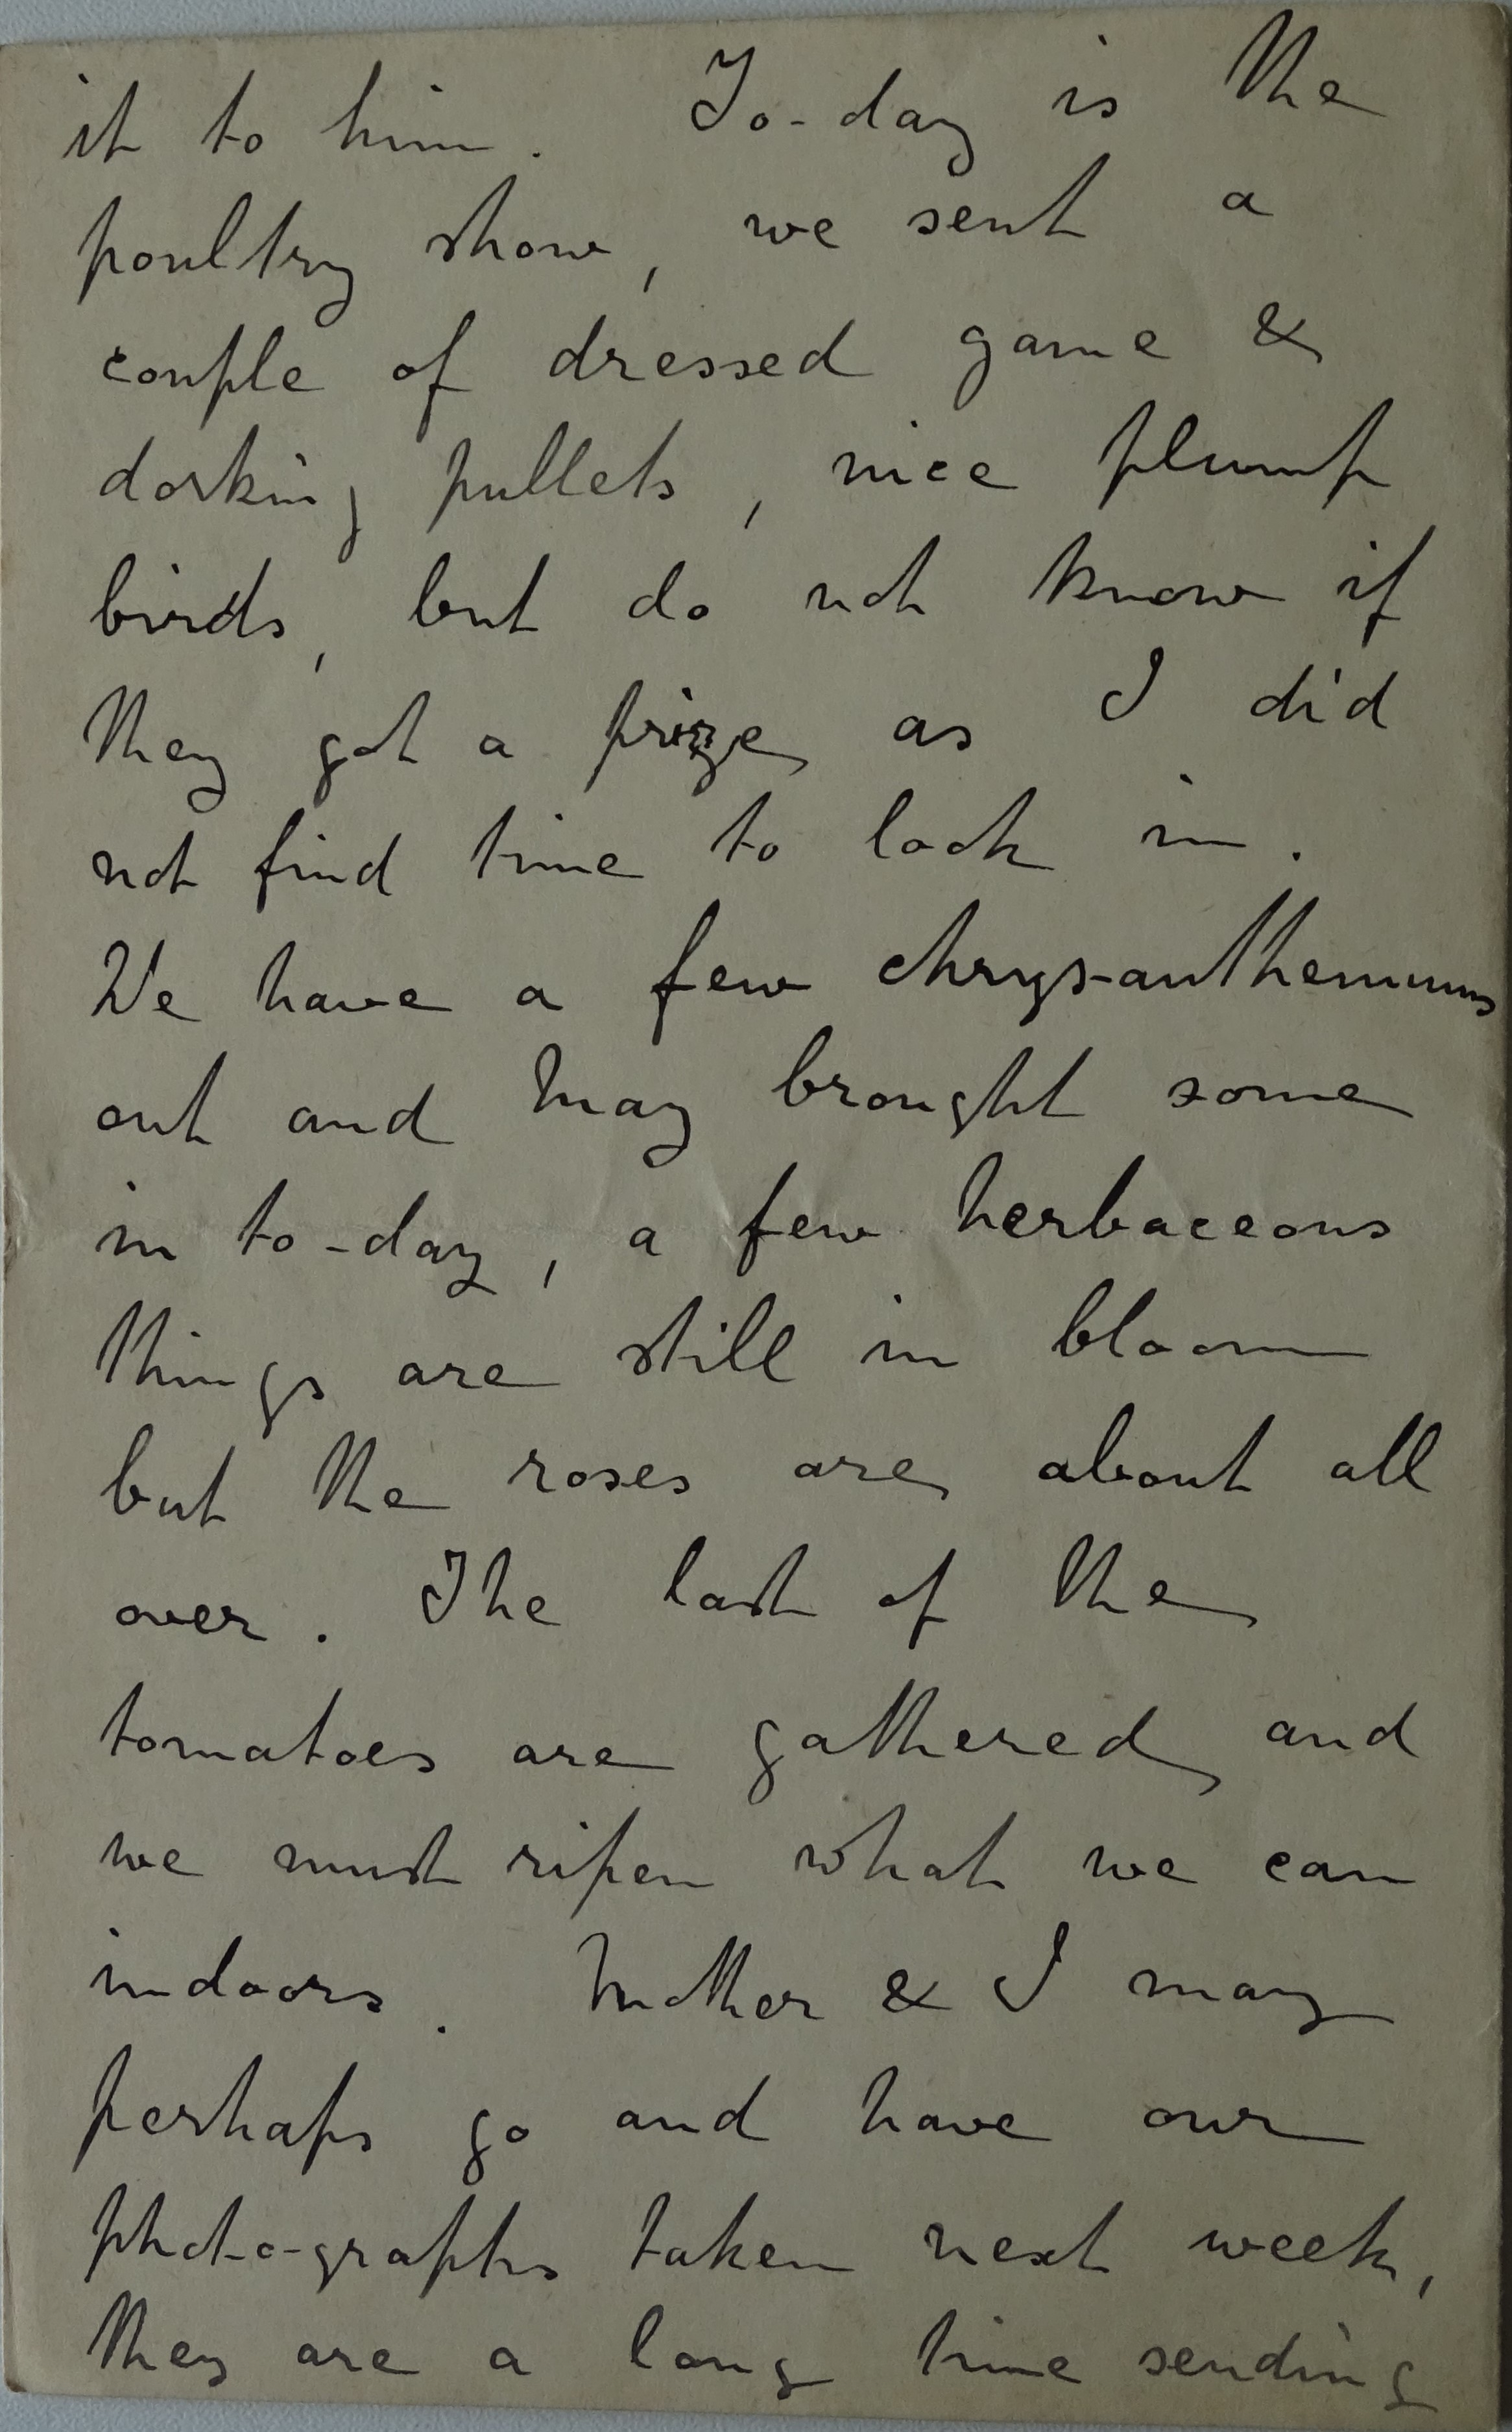 it to him. To-day is the
poultry show, we sent a
couple of dressed game &
dorking pullets, nice plump
birds, but do not know if
they got a prize as I did
not find time to look in.
We have a few chrysanthemums
out and May brought some
in to-day, a few herbaceous
things are still in bloom
but the roses are about all
over. The last of the
tomatoes are gathered and
we must ripen what we can
indoors. Mother & I may
perhaps go and have our
photographs taken next week,
they are a long time sending